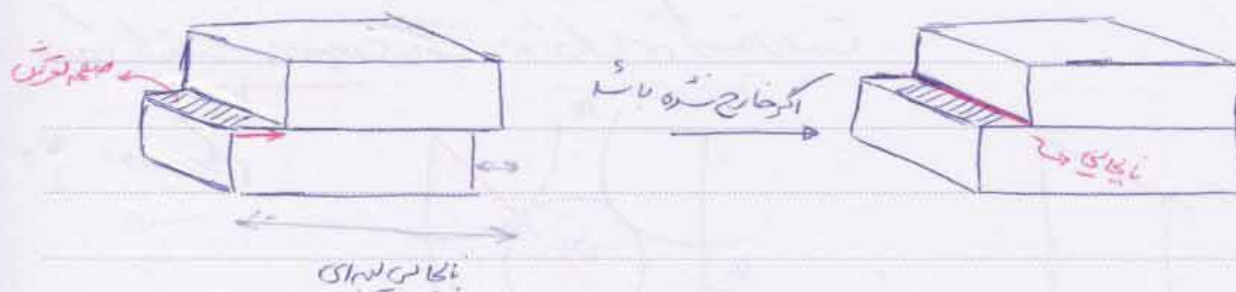 صفحه لغزش
اگر خارج نشده باشد
نابجایی
نابجایی لبه‌ای